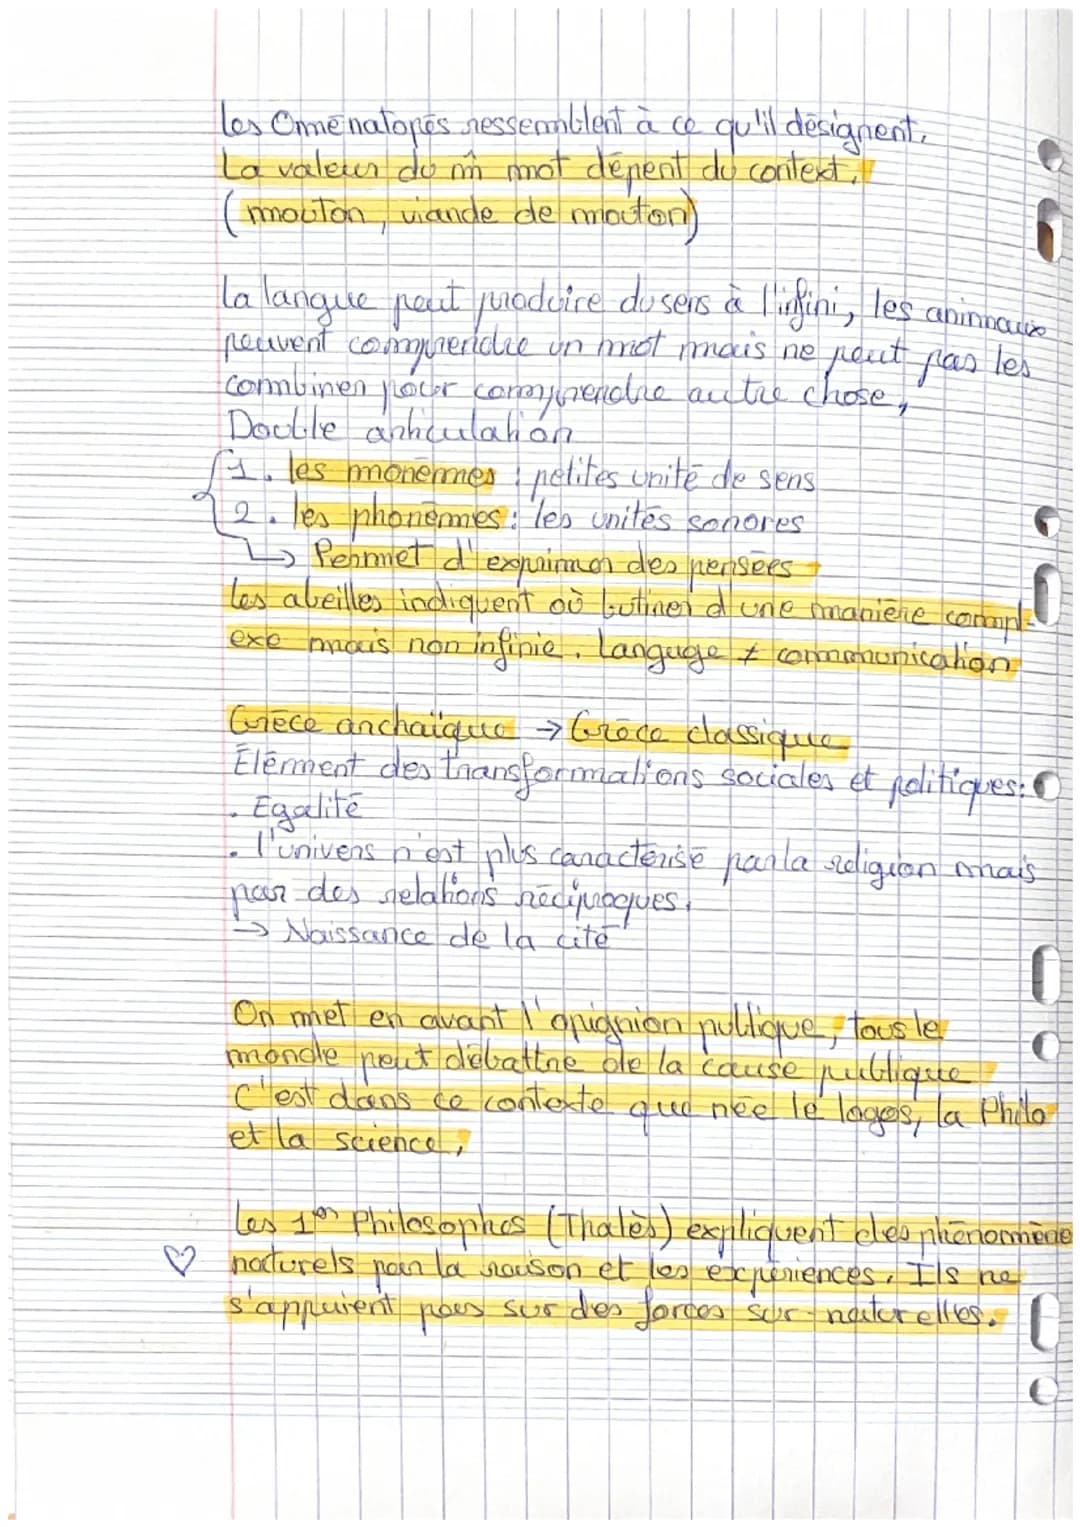 Les Omènatopés ressemblent à ce qu'il désignent.
La valeur du m̂ mot dépent du context.
(mouton, viande de mouton)
La langue peut produire du sens à l'infini, les animnaux
peuvent comprendre un mot mais ne peut pas les
combiner pour comprendre autre chose,
Double articulation
1. les monèmes : petites unité de sens
2. les phonèmes : les unités sonores
↳ Permet d'exprimer des pensées
Les abeilles indiquent où butiner d'une manière compl-
exe mais non infinie. Language ≠ communication
Grèce archaïque → Grèce classique
Elément des transformations sociales et politiques:
. Egalité
. l'univers n'est plus caractérisé par la religion mais
par des relations réciproques.
→ Naissance de la cité
On met en avant l'opignion publique, tous le
monde peut débattre de la cause publique
C'est dans ce contexte que née le logos, la Philo
et la science,
Les 1ers Philosophes (Thalès) expliquent des phénomène
♡ naturels par la raison et les expériences. Ils ne
s'appuient pas sur des forces sur-naturelles.